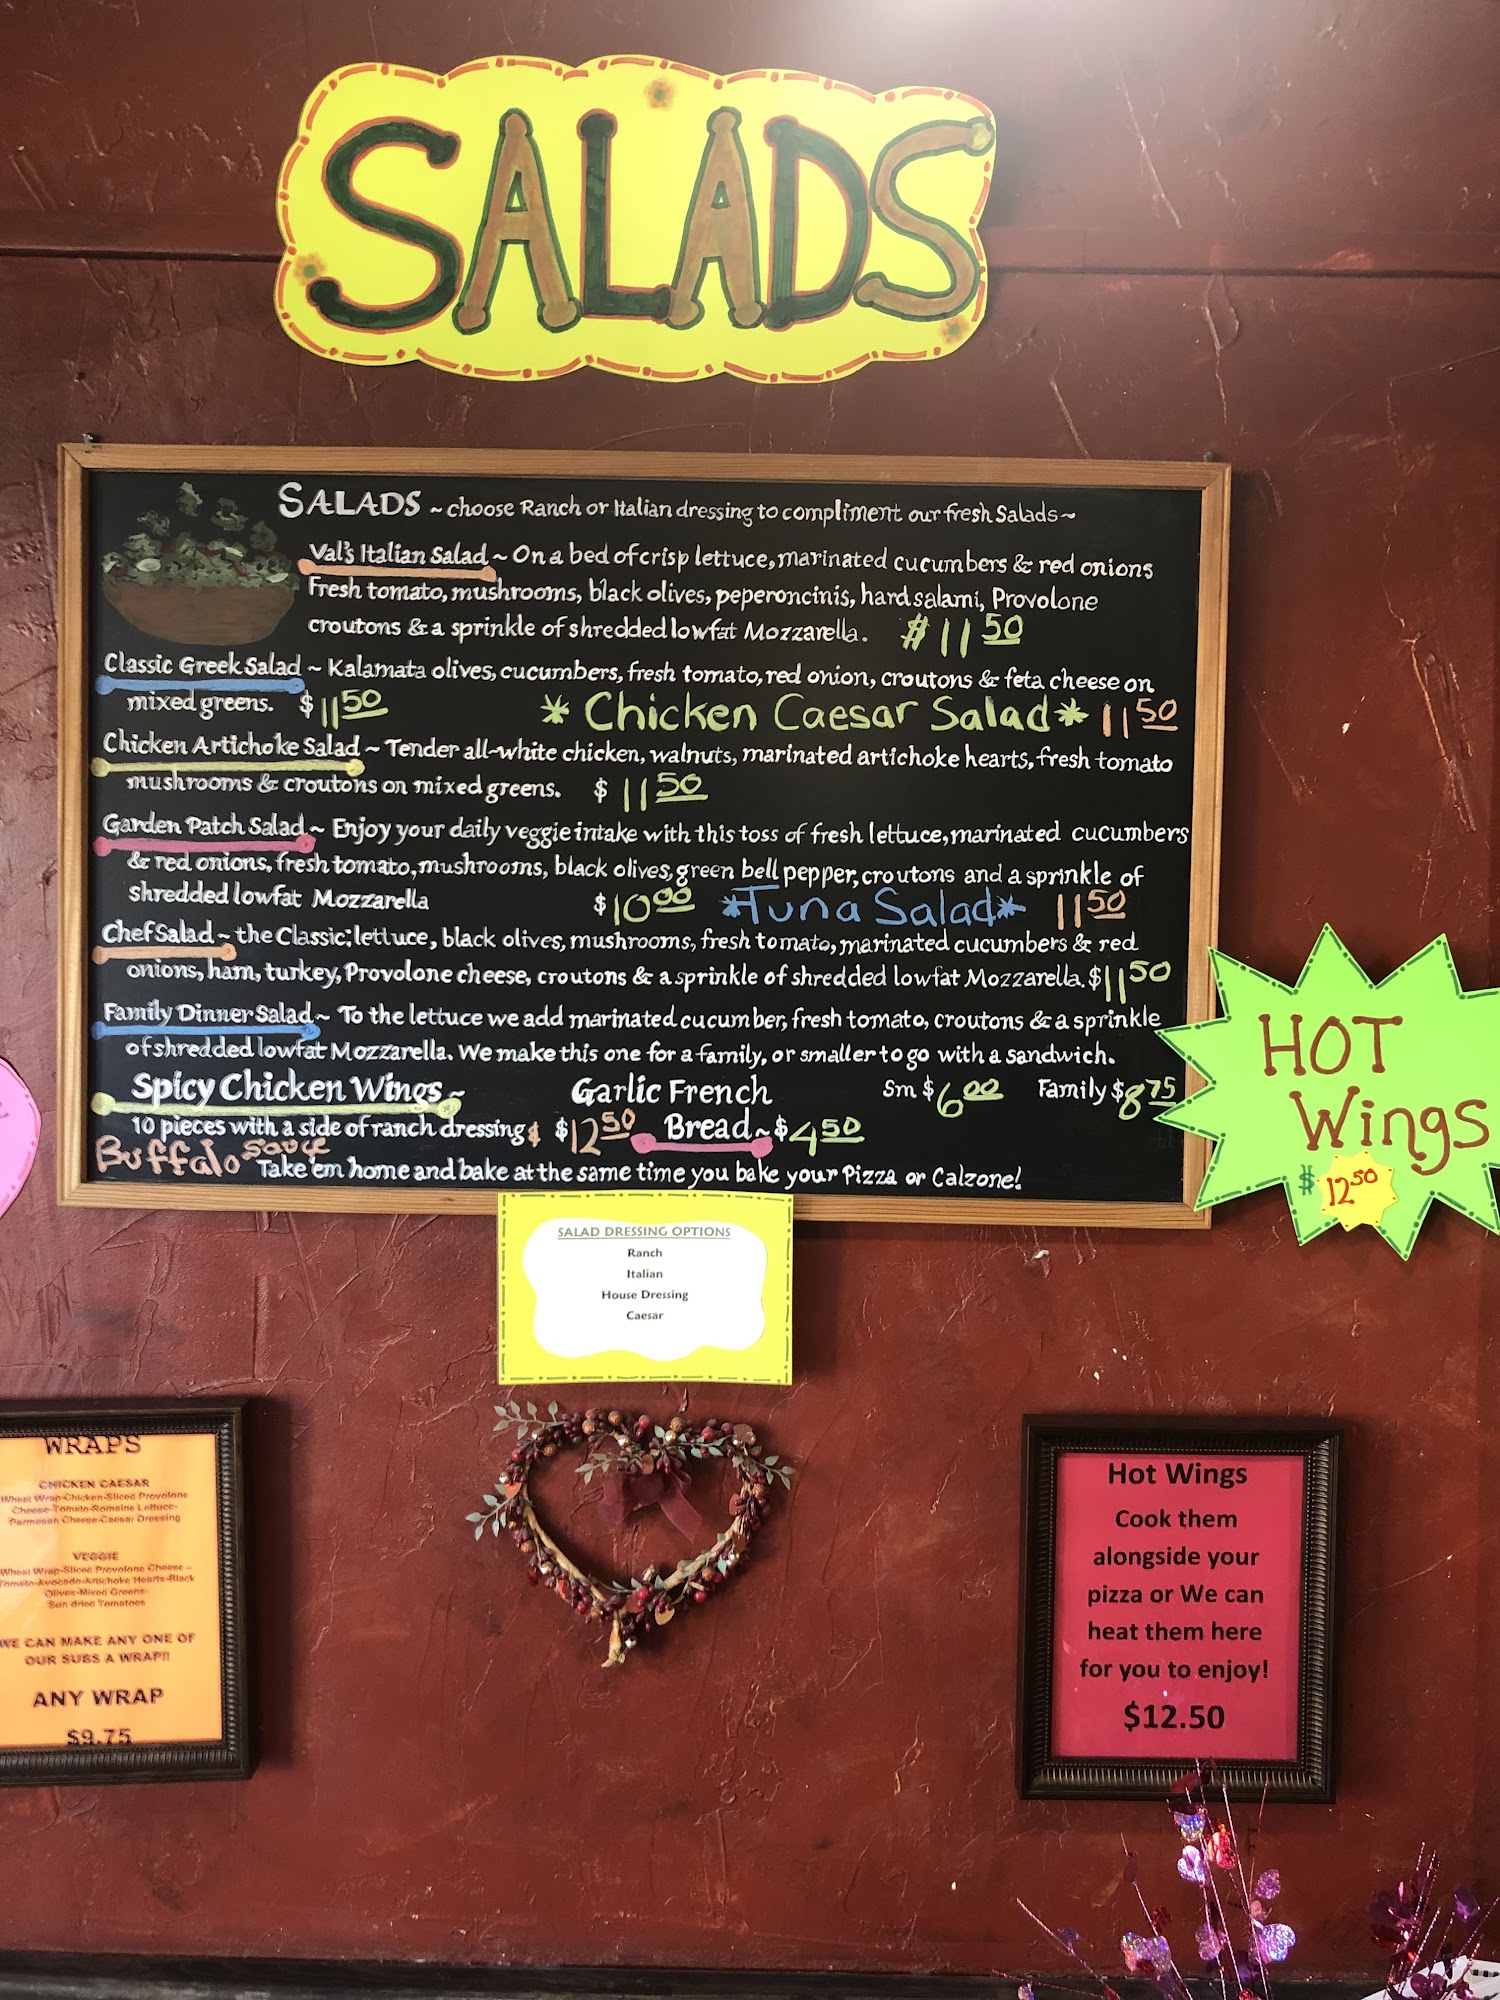 SALADS
SALADS ~ choose Ranch or Italian dressing to compliment our fresh Salads ~
Val's Italian Salad ~ On a bed of crisp lettuce, marinated cucumbers & red onions
Fresh tomato, mushrooms, black olives, peperoncinis, hard salami, Provolone
croutons & a sprinkle of shredded lowfat Mozzarella. $11 50
Classic Greek Salad ~ Kalamata olives, cucumbers, fresh tomato, red onion, croutons & feta cheese on
mixed greens. $11 50 * Chicken Caesar Salad * 11 50
Chicken Artichoke Salad ~ Tender all-white chicken, walnuts, marinated artichoke hearts, fresh tomato
mushrooms & croutons on mixed greens. $11 50
Garden Patch Salad ~ Enjoy your daily veggie intake with this toss of fresh lettuce, marinated cucumbers
& red onions, fresh tomato, mushrooms, black olives, green bell pepper, croutons and a sprinkle of
shredded lowfat Mozzarella $10 00 *Tuna Salad* 11 50
Chef Salad ~ the Classic; lettuce, black olives, mushrooms, fresh tomato, marinated cucumbers & red
onions, ham, turkey, Provolone cheese, croutons & a sprinkle of shredded lowfat Mozzarella. $11 50
Family Dinner Salad ~ To the lettuce we add marinated cucumber, fresh tomato, croutons & a sprinkle
of shredded lowfat Mozzarella. We make this one for a family, or smaller to go with a sandwich.
Sm $6 00 Family $8 75
Spicy Chicken Wings ~
10 pieces with a side of ranch dressing & $12 50
Buffalo sauce
Garlic French
Bread ~ $4 50
Take 'em home and bake at the same time you bake your Pizza or Calzone!
HOT
Wings
$ 12 50
SALAD DRESSING OPTIONS
Ranch
Italian
House Dressing
Caesar
WRAPS
CHICKEN CAESAR
Wheat Wrap-Chicken-Sliced Provolone
Cheese-Tomato-Romaine Lettuce-
Parmesan Cheese-Caesar Dressing
VEGGIE
Wheat Wrap-Sliced Provolone Cheese –
Tomato-Avocado-Artichoke Hearts-Black
Olives-Mixed Greens-
Sun dried Tomatoes
WE CAN MAKE ANY ONE OF
OUR SUBS A WRAP!!
ANY WRAP
$9.75
Hot Wings
Cook them
alongside your
pizza or We can
heat them here
for you to enjoy!
$12.50